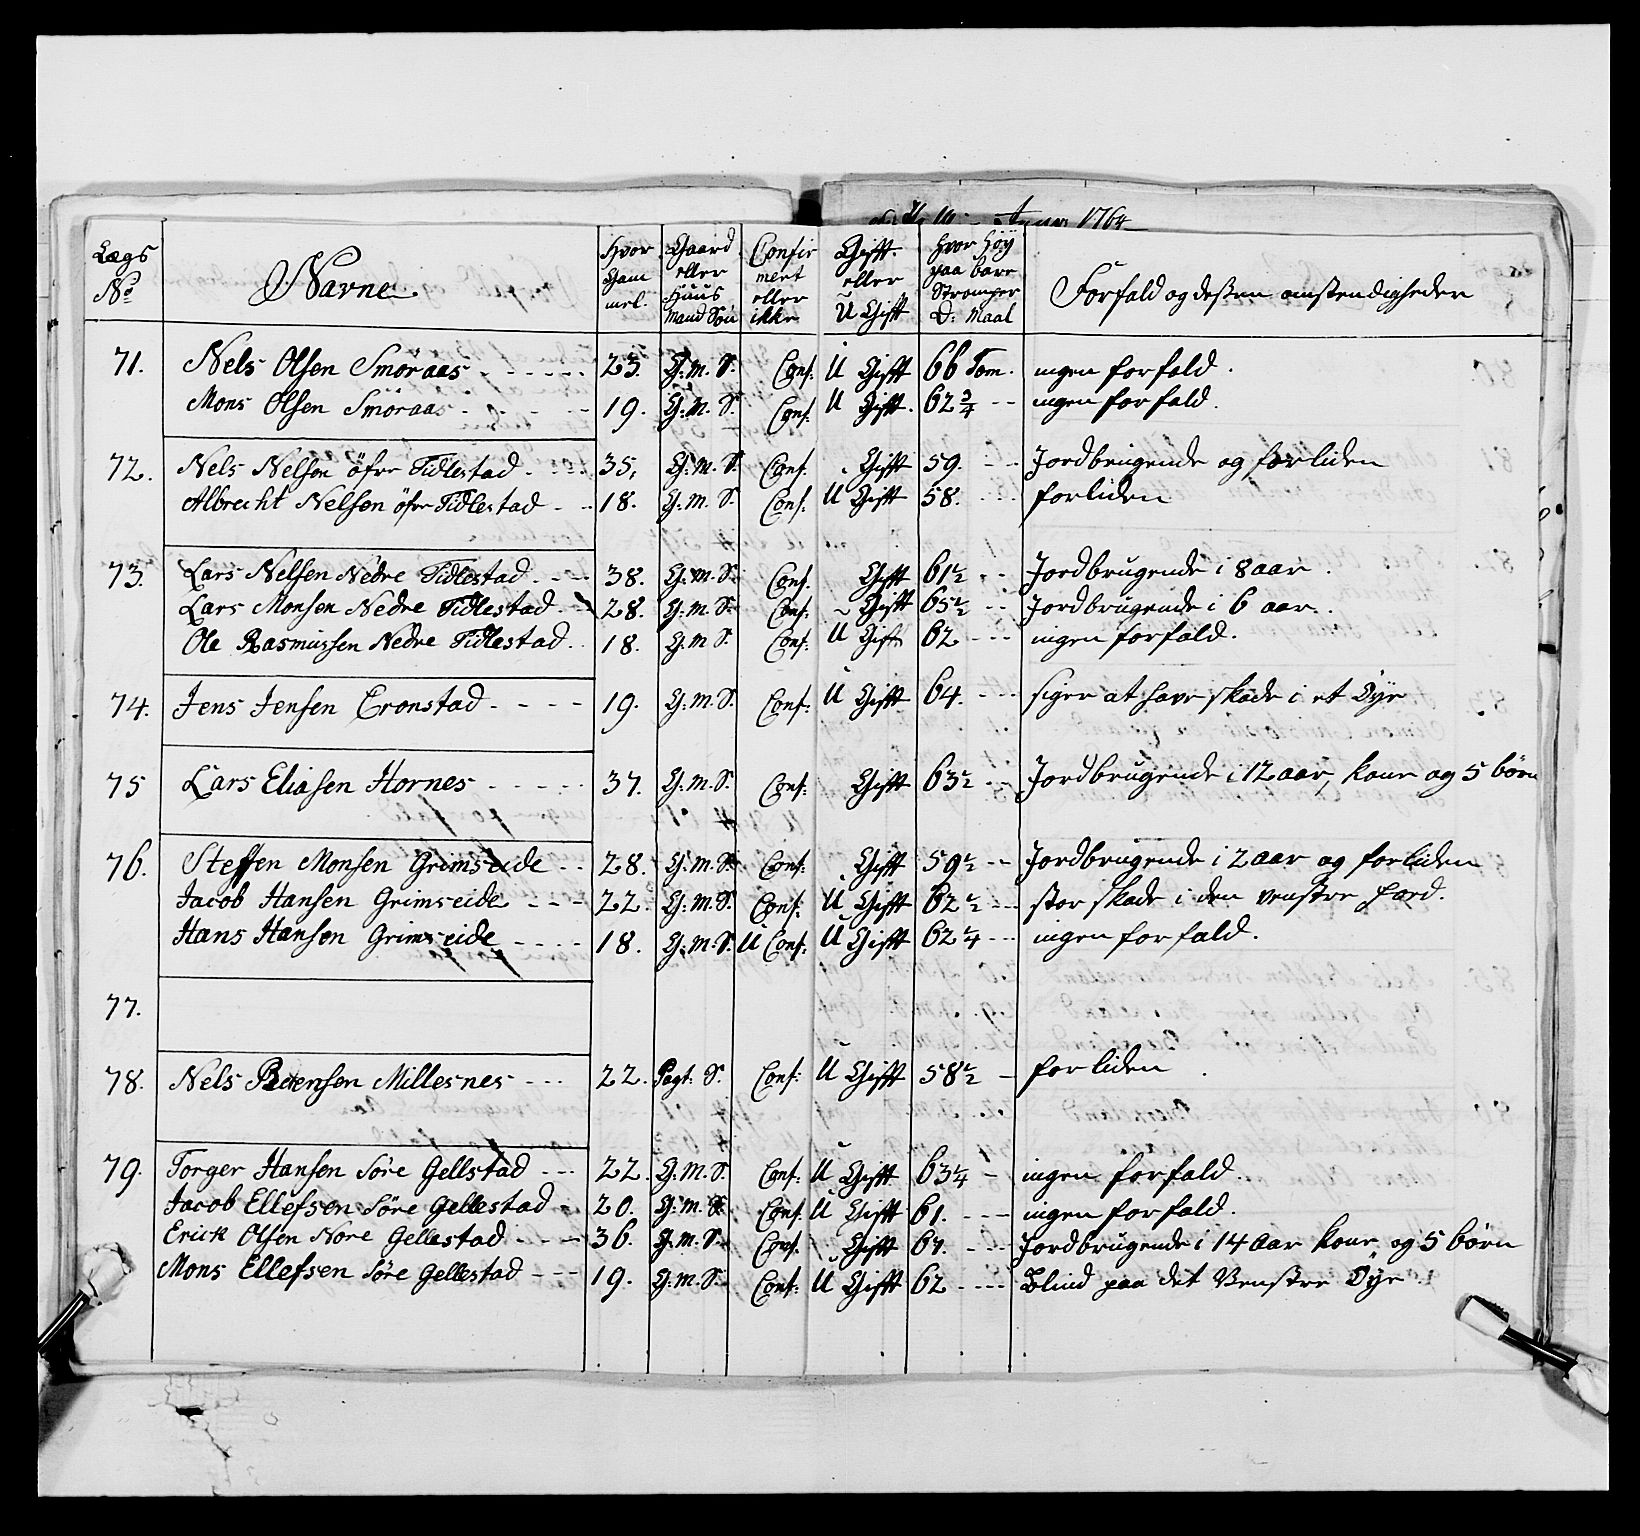 1764
Lægs No Navne Hvor Gam mel. Gaard eller Huus Mand Søn Confir mert eller ikke Gift eller U Gift Hvor Høy paa bare Strømper D: Maal Forfald og dessen omstendigheder
71. Nels Olsen Smöraas 23. G: m. S. Conf: U Gift 66 Tom. ingen forfald.
Mons Olsen Smöraas 19. G: m. S. Conf: U Gift. 62 3/4 ingen forfald.
72. Nels Nelsen öfre Tidlestad 35, G: m. S. Conf. Gift 59. Jordbrugende og forliden
Albrecht Nelsen öfre Tidlestad 18. G: m. S. Conf. U Gift 58. forliden
73. Lars Nelsen Nedre Tidlestad 38. G: m. S. Conf. Gift 61 1/2 Jordbrugende i 8 aar.
Lars Monsen Nedre Tidlestad 28. G: m. S. Conf. Gift 65 1/2 Jordbrugende i 6 aar.
Ole Rasmussen Nedre Tidlestad 18. G: m S. Conf: U Gift 62 ingen forfald.
74. Jens Jensen Cronstad 19. G: m. S. Conf. U Gift 64. siger at have skade i et Öye
75 Lars Eliasen Hornes 37. G: m. S. Conf: Gift 63 1/2 Jordbrugende i 12 aar, kone og 5 börn
76. Steffen Monsen Grimseide 28. G: m. S. Conf: Gift 59 1/2 Jordbrugende i 2 aar og forliden
Jacob Hansen Grimseide 22. G: m. S. Conf: U Gift 62 1/2 stor skade i den venstre
Hans Hansen Grimseide 18. G: m. S. U Conf: U Gift 62 1/4 ingen forfald.
77.
78. Nels Millesnes 22. Pagt. S. Conf: U Gift 58 1/2 forliden
79. Torger Hansen Söre Gellstad 22. G: m. S. Conf: U Gift 63 1/4 ingen forfald.
Jacob Ellefsen Söre Gellestad 20. G: m. S. Conf. U Gift 61. ingen forfald.
Erick Olsen Nore Gellestad 36. G: m. S. Conf. Gift 67. Jordbrugende i 14 aar kone og 5 börn
Mons Ellefsen Söre Gellestad 19. G: m. S. Conf: U Gift 62 Blind paa det Venstre Öye